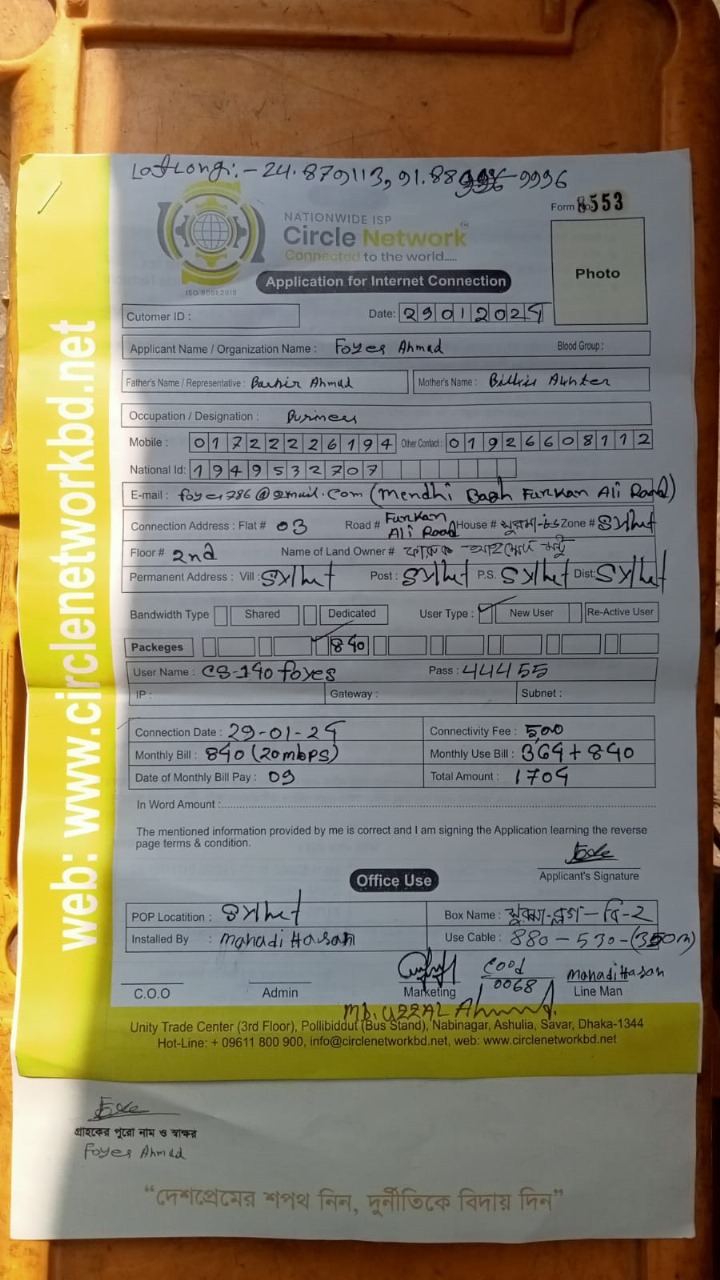 Lat Long:- 24.879113, 91.88 9996
Form No 8553
NATIONWIDE ISP
Circle Network™
Connected to the world.....
ISO 9001:2015
Application for Internet Connection
Photo
Cutomer ID :
Date: 29012024
Applicant Name / Organization Name : Foyes Ahmad Blood Group :
Father's Name / Representative : Bashir Ahmad Mother's Name : Billkis Akhter
Occupation / Designation :
Mobile : 01722226194 Other Contact : 01926608112
National Id: 1949532707
E-mail : foyes786@gmail.com (Mendhi Bagh Furkan Ali Road)
Connection Address : Flat # 03 Road # Furkan Ali Road House # Zone # Sylhet
Floor # 2nd Name of Land Owner #
Permanent Address : Vill : Sylhet Post : Sylhet P.S. Sylhet Dist: Sylhet
Bandwidth Type Shared Dedicated User Type : ✓ New User Re-Active User
Packeges ✓ 840
User Name : CS-140 foyes Pass : 444455
IP : Gateway : Subnet :
Connection Date : 29-01-24 Connectivity Fee : 500
Monthly Bill : 840 (20mbps) Monthly Use Bill : 364+840
Date of Monthly Bill Pay : 09 Total Amount : 1704
In Word Amount :
The mentioned information provided by me is correct and I am signing the Application learning the reverse
page terms & condition.
Applicant's Signature
Office Use
POP Locatition : Sylhet Box Name :
Installed By : Mahadi Hasan Use Cable : 880-530-(350m)
0068 Mahadi Hasan
C.O.O Admin Marketing Line Man
MD. UZZAL Ahmed.
Unity Trade Center (3rd Floor), Pollibiddut (Bus Stand), Nabinagar, Ashulia, Savar, Dhaka-1344
Hot-Line: + 09611 800 900, info@circlenetworkbd.net, web: www.circlenetworkbd.net
web: www.circlenetworkbd.net
গ্রাহকের পুরো নাম ও স্বাক্ষর
Foyes Ahmad
“দেশপ্রেমের শপথ নিন, দুর্নীতিকে বিদায় দিন”